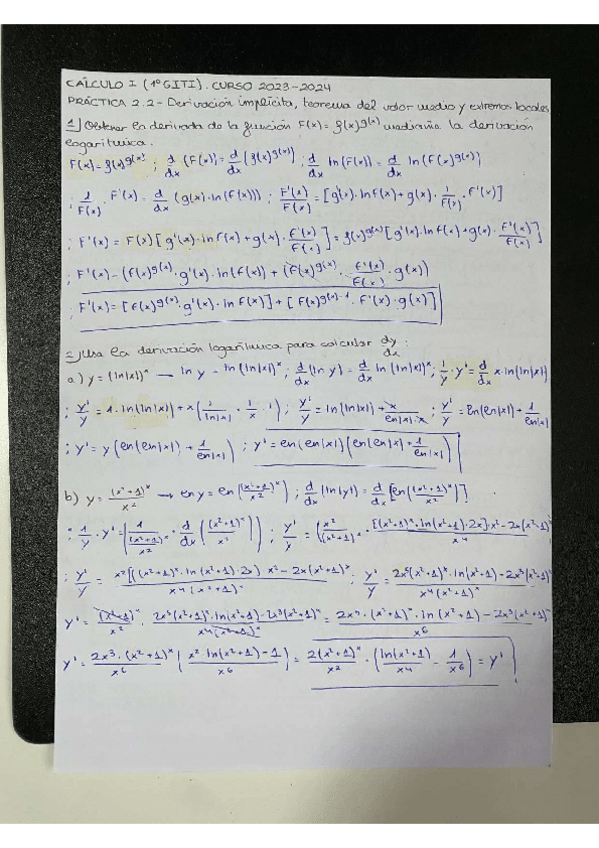 CÁLCULO I (1º GITI). CURSO 2023-2024
PRÁCTICA 2.2- Derivación implícita, teorema del valor medio y extremos locales
1) Obtener la derivada de la función F(x) = f(x)^g(x) mediante la derivación
logarítmica.
F(x) = f(x)^g(x) ; d/dx (F(x)) = d/dx (f(x)^g(x)) ; d/dx ln(F(x)) = d/dx ln(f(x)^g(x))
; 1/F(x) · F'(x) = d/dx (g(x)·ln(f(x))) ; F'(x)/F(x) = [g'(x)·ln f(x) + g(x)· 1/f(x) · f'(x)]
; F'(x) = F(x) [g'(x)·ln f(x) + g(x)· f'(x)/f(x)] = f(x)^g(x) [g'(x)·ln f(x) + g(x)· f'(x)/f(x)]
; F'(x) = (f(x)^g(x) · g'(x)·ln(f(x)) + (f(x)^g(x) · f'(x)/f(x) · g(x))
; F'(x) = [f(x)^g(x) · g'(x)·ln f(x)] + [f(x)^g(x)-1 · f'(x)·g(x)]
2) Usa la derivación logarítmica para calcular dy/dx
a) y = (ln|x|)^x → ln y = ln(ln|x|)^x ; d/dx (ln y) = d/dx ln(ln|x|)^x ; 1/y · y' = d/dx x·ln(ln|x|)
; y'/y = 1·ln(ln|x|) + x(1/ln|x| · 1/x · 1) ; y'/y = ln(ln|x|) + x/ln|x|·x ; y'/y = ln(ln|x|) + 1/ln|x|
; y' = y (ln(ln|x|) + 1/ln|x|) ; y' = ln(ln|x|) (ln(ln|x|) + 1/ln|x|)
b) y = (x²+1)^x/x² → ln y = ln((x²+1)^x/x²) ; d/dx (ln|y|) = d/dx [ln((x²+1)^x/x²)]
; 1/y · y' = (1/((x²+1)^x/x²) · d/dx ((x²+1)^x/x²)) ; y'/y = (x²/(x²+1)^x · [((x²+1)^x · ln(x²+1)·2x]·x² - 2x(x²+1)^x/x⁴
; y'/y = x²[((x²+1)^x · ln(x²+1)·2x) x² - 2x(x²+1)^x/x⁴(x²+1)^x ; y'/y = 2x⁵(x²+1)^x · ln(x²+1) - 2x³(x²+1)^x/x⁴(x²+1)^x
y' = (x²+1)^x/x² · 2x⁵(x²+1)^x · ln(x²+1) - 2x³(x²+1)^x/x⁴(x²+1)^x = 2x⁵·(x²+1)^x · ln(x²+1) - 2x³(x²+1)^x/x⁶
y' = 2x³·(x²+1)^x/x⁶ (x²·ln(x²+1) - 1/x⁶) = 2(x²+1)^x/x² · (ln(x²+1)/x⁴ - 1/x⁶) = y'